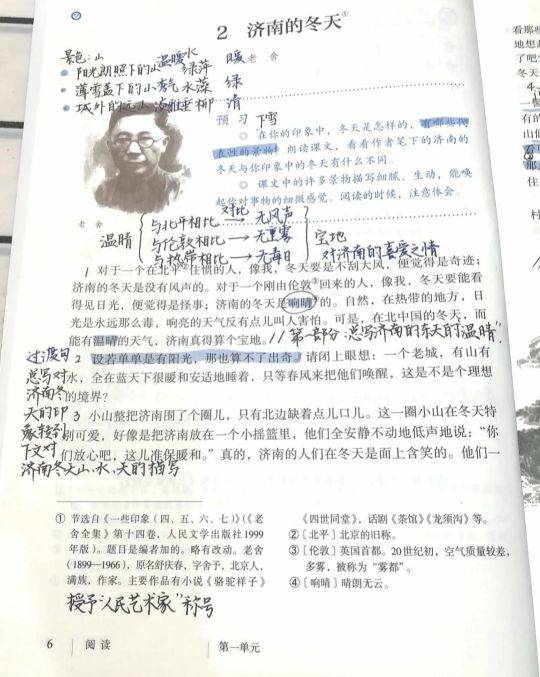 2 济南的冬天①
老 舍
景色:山 温暖水 暖
阳光朗照下的山 绿萍
薄雪盖下的山秀气 水藻 绿
城外的远山淡雅垂柳 清
预 习 下雪
○ 在你的印象中,冬天是怎样的,有哪些代
表性的景物?朗读课文,看看作者笔下的济南的
冬天与你印象中的冬天有什么不同。
○ 课文中的许多景物描写细腻、生动,能唤
起你对事物的细微感觉。阅读的时候,注意体会。
老 舍
温晴
对比
与北平相比→无风声
与伦敦相比→无重雾
与热带相比→无毒日
宝地
对济南的喜爱之情
1 对于一个在北平②住惯的人,像我,冬天要是不刮大风,便觉得是奇迹;
济南的冬天是没有风声的。对于一个刚由伦敦③回来的人,像我,冬天要能看
得见日光,便觉得是怪事;济南的冬天是响晴④的。自然,在热带的地方,日
光是永远那么毒,响亮的天气反有点儿叫人害怕。可是,在北中国的冬天,而
能有温晴的天气,济南真得算个宝地。//第一部分 总写济南的冬天的“温晴”
2 设若单单是有阳光,那也算不了出奇。请闭上眼想:一个老城,有山有
水,全在蓝天下很暖和安适地睡着,只等春风来把他们唤醒,这是不是个理想
的境界?
3 小山整把济南围了个圈儿,只有北边缺着点儿口儿。这一圈小山在冬天特
别可爱,好像是把济南放在一个小摇篮里,他们全安静不动地低声地说:“你
们放心吧,这儿准保暖和。”真的,济南的人们在冬天是面上含笑的。他们一
过渡句
总写对
济南冬
天的印
象转到
下文对
济南冬天山、水、天的描写
① 节选自《一些印象(四、五、六、七)》(《老
舍全集》第十四卷,人民文学出版社1999
年版)。题目是编者加的。略有改动。老舍
(1899—1966),原名舒庆春,字舍予,北京人,
满族,作家。主要作品有小说《骆驼祥子》
《四世同堂》,话剧《茶馆》《龙须沟》等。
②〔北平〕北京的旧称。
③〔伦敦〕英国首都。20世纪初,空气质量较差,
多雾,被称为“雾都”。
④〔响晴〕晴朗无云。
授予“人民艺术家”称号
6 阅 读
第一单元
看那些
地想
了吧
冬天
4
一
有的
山
看
那
住
村